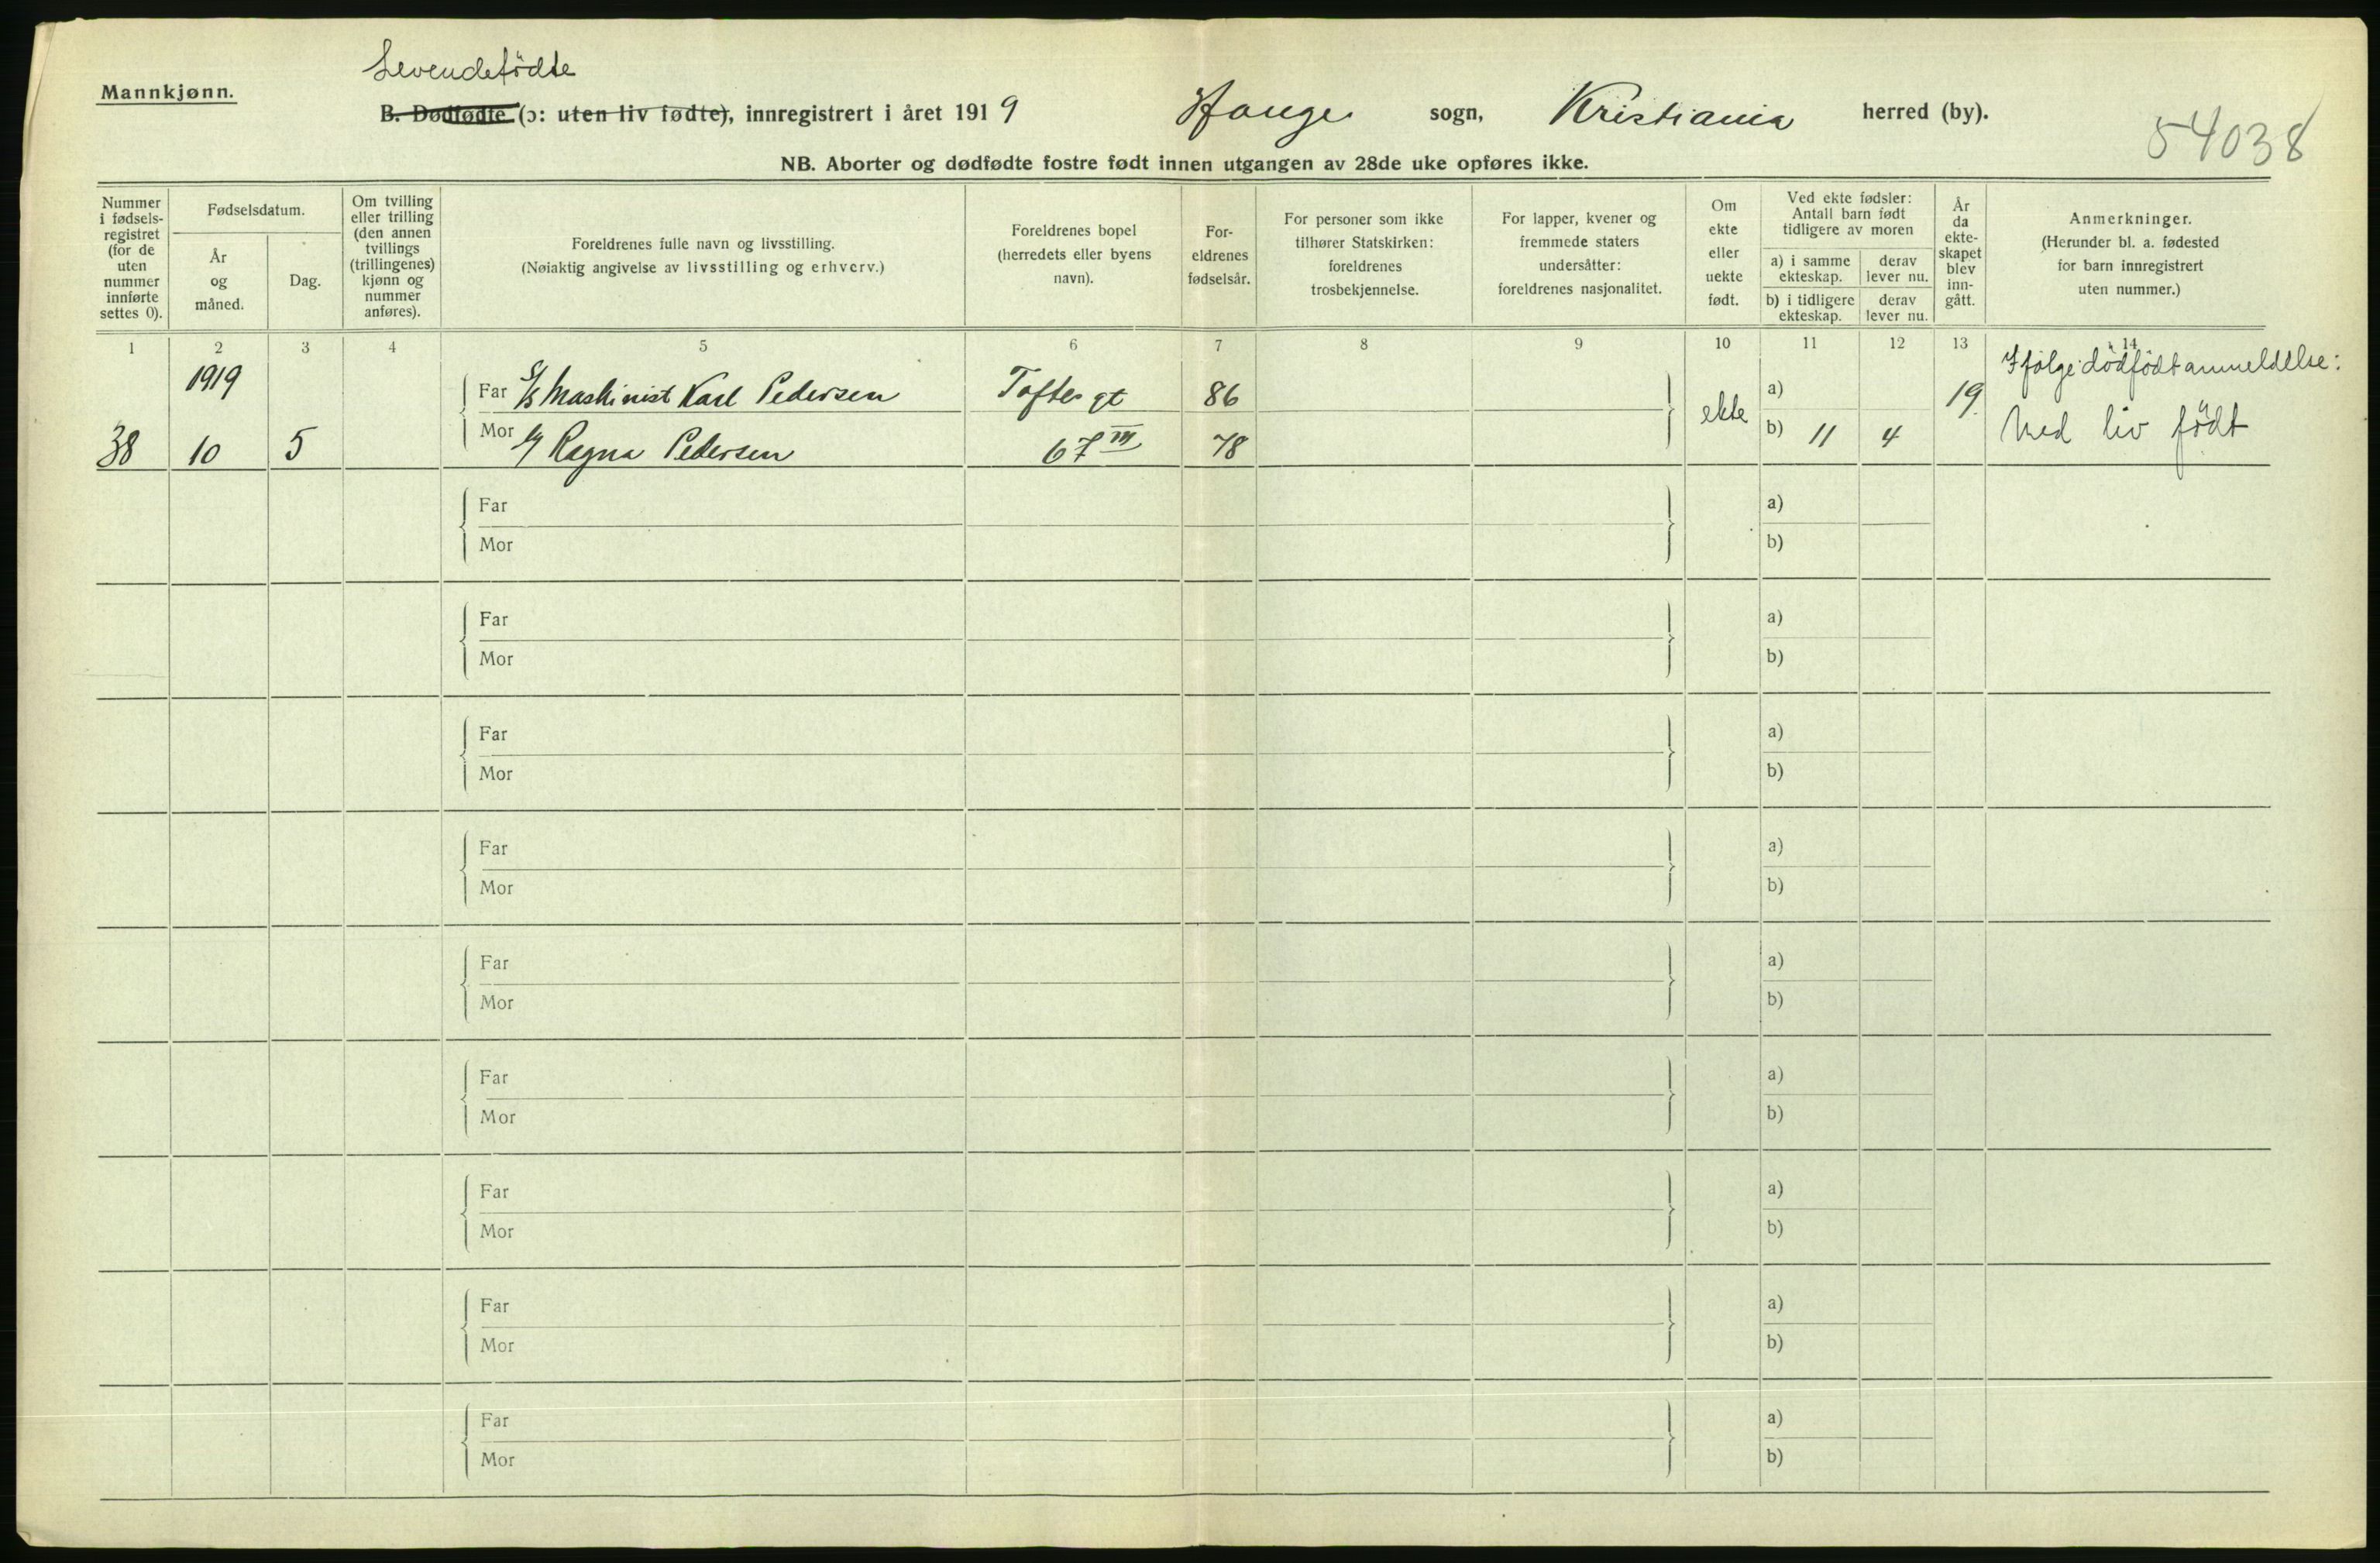 Levendefødte
Mannkjønn.
B. Dødfødte (ɔ: uten liv fødte), innregistrert i året 1919 Hauge sogn, Kristiania herred (by).
54038
NB. Aborter og dødfødte fostre født innen utgangen av 28de uke opføres ikke.
Nummer i fødsels-registret (for de uten nummer innførte settes 0).
Fødselsdatum.
År og måned.
Dag.
Om tvilling eller trilling (den annen tvillings (trillingenes) kjønn og nummer anføres).
Foreldrenes fulle navn og livsstilling.
(Nøiaktig angivelse av livsstilling og erhverv.)
Foreldrenes bopel (herredets eller byens navn).
For-eldrenes fødselsår.
For personer som ikke tilhører Statskirken: foreldrenes trosbekjennelse.
For lapper, kvener og fremmede staters undersåtter: foreldrenes nasjonalitet.
Om ekte eller uekte født.
Ved ekte fødsler: Antall barn født tidligere av moren
a) i samme ekteskap.
derav lever nu.
b) i tidligere ekteskap.
derav lever nu.
År da ekte-skapet blev inn-gått.
Anmerkninger.
(Herunder bl. a. fødested for barn innregistrert uten nummer.)
1 2 3 4 5 6 7 8 9 10 11 12 13 14
1919 Far Maskinist Karl Pedersen Toftes gt 86 a) 19 Ifølge dødfødtanmeldelse:
38 10 5 Mor Ragna Pedersen 67 III 78 ekte b) 11 4 Med liv født
Far a)
Mor b)
Far a)
Mor b)
Far a)
Mor b)
Far a)
Mor b)
Far a)
Mor b)
Far a)
Mor b)
Far a)
Mor b)
Far a)
Mor b)
Far a)
Mor b)